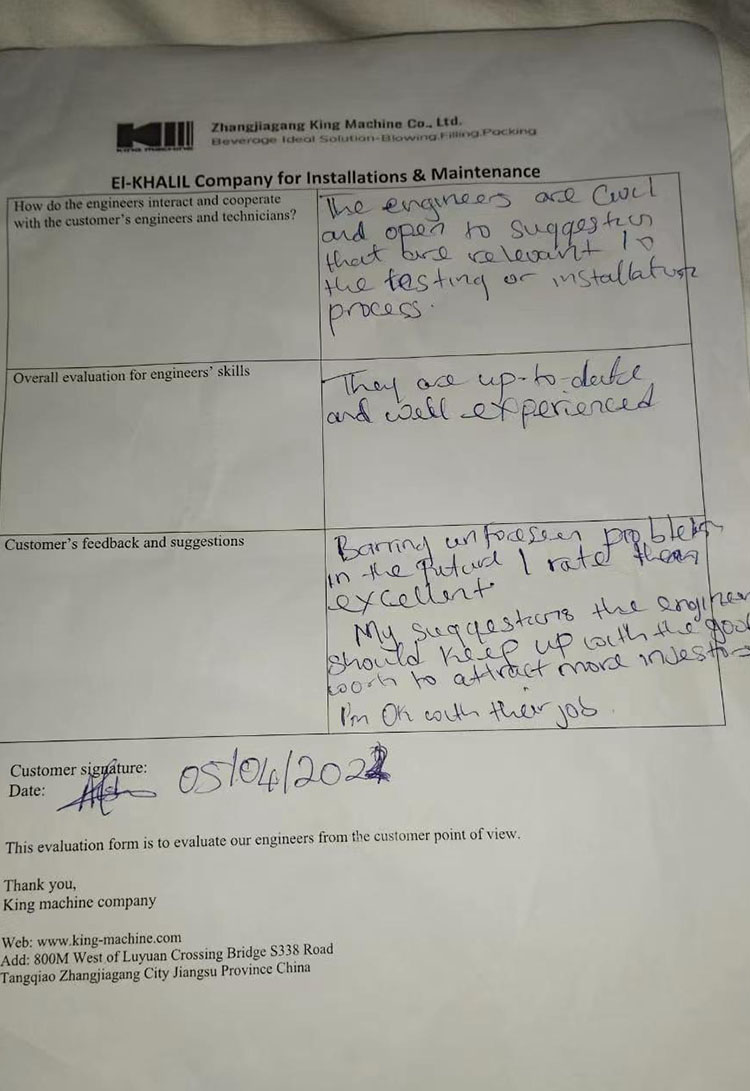 KING MACHINE
Zhangjiagang King Machine Co., Ltd.
Beverage Ideal Solution-Blowing.Filling.Packing
El-KHALIL Company for Installations & Maintenance
How do the engineers interact and cooperate
with the customer's engineers and technicians?
The engineers are Civil
and open to suggestion
that are relevant to
the testing or installation
process.
Overall evaluation for engineers' skills
They are up-to-date
and well experienced
Customer's feedback and suggestions
Barring unforeseen problem
in the future I rate them
excellent
My suggestions the engineer
should keep up with the good
work to attract more investors
I'm OK with their job.
Customer signature:
Date:
05/04/202
This evaluation form is to evaluate our engineers from the customer point of view.
Thank you,
King machine company
Web: www.king-machine.com
Add: 800M West of Luyuan Crossing Bridge S338 Road
Tangqiao Zhangjiagang City Jiangsu Province China